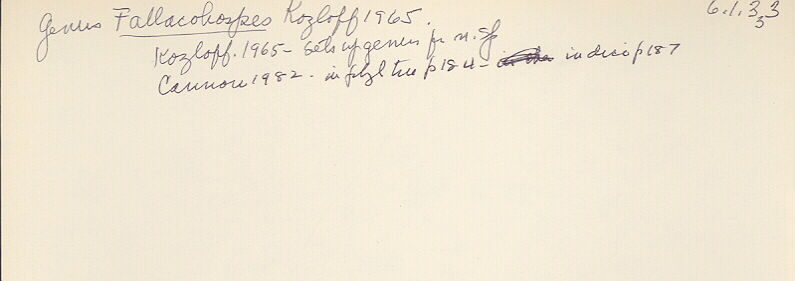 Genus Fallacohospes Kozloff 1965.
6.1.3.3
3
Kozloff. 1965 - Sets up genus for n. sp
Cannon 1982 - in phyl tree p 184 - in disc p 187